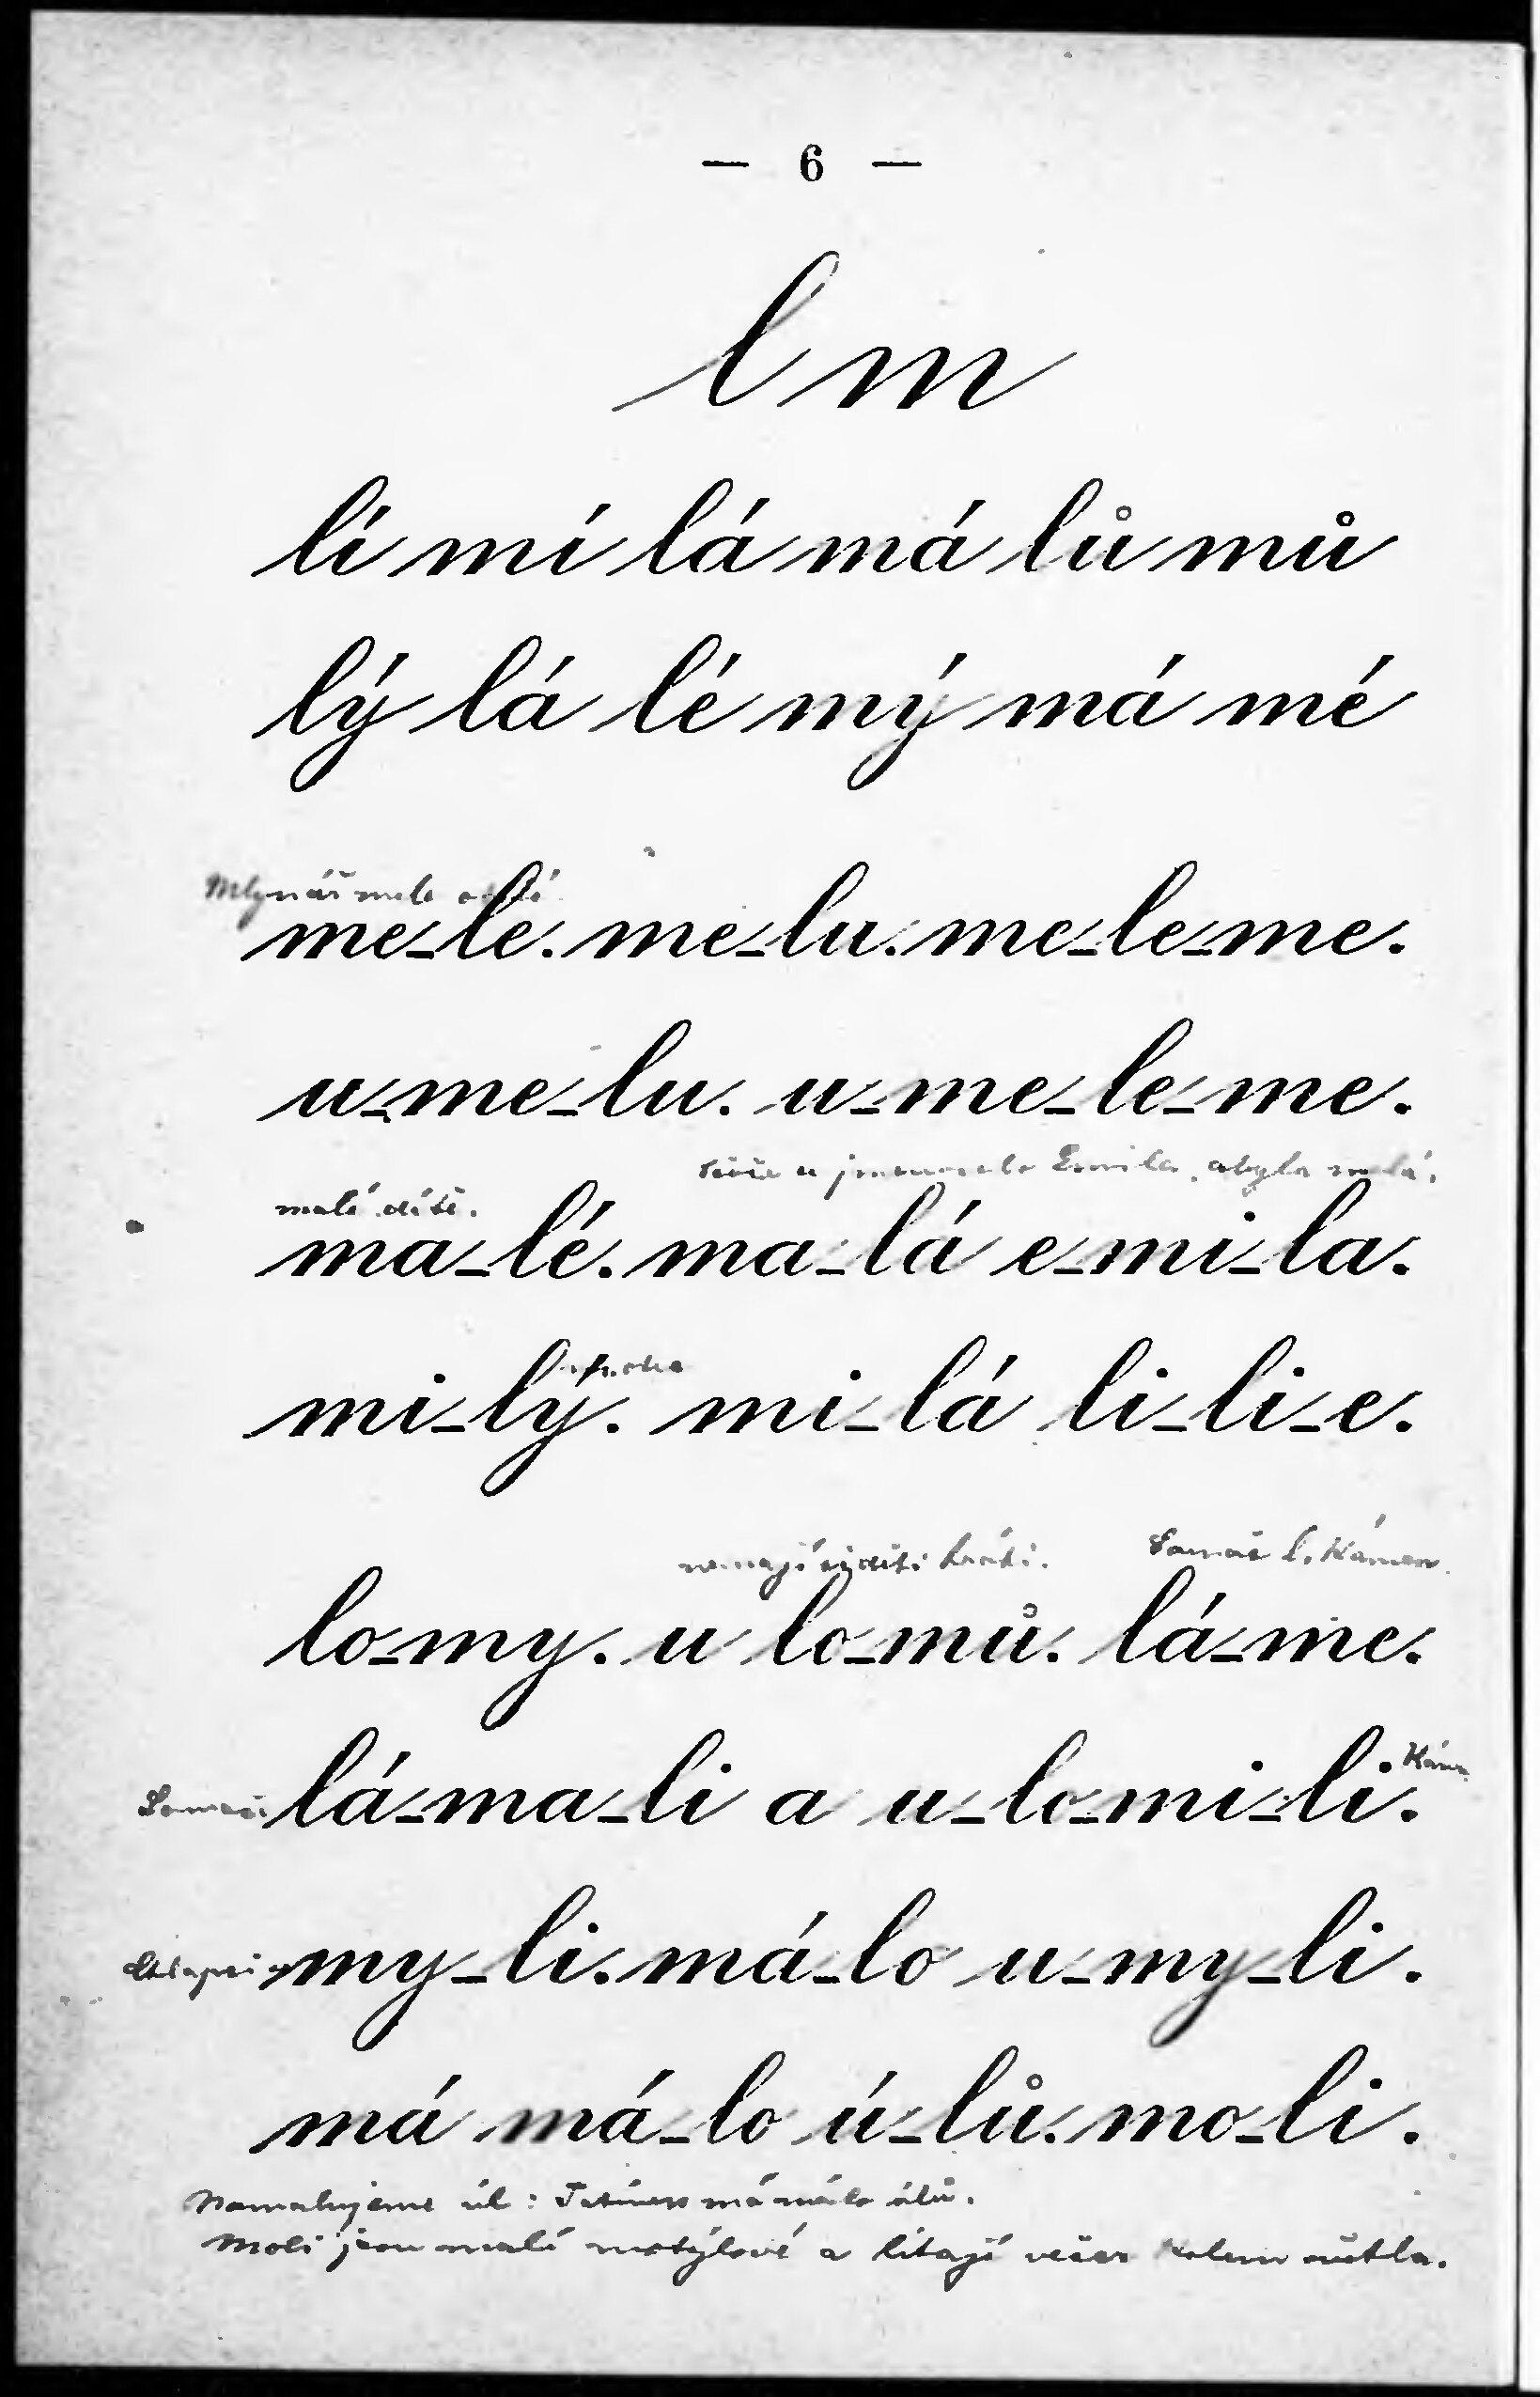 — 6 —
l m
lí mí lá má lů mů
lý lá lé mý má mé
Mlynář mele
me-le. me-lu. me-le-me.
u-me-lu. u-me-le-me.
Emila, abyla malá.
malé dítě.
ma-lé. ma-lá e-mi-la.
mi-lý. mi-lá li-li-e.
nemají děti hráti. Lamač l. Kámen.
lo-my. u lo-mů. lá-me.
Lamači lá-ma-li a u-lo-mi-li.
my-li. má-lo u-my-li.
má má-lo ú-lů. mo-li.
Namalujeme úl: Tatínek má málo úlů.
Moli jsou malí motýlové a lítají večer kolem světla.